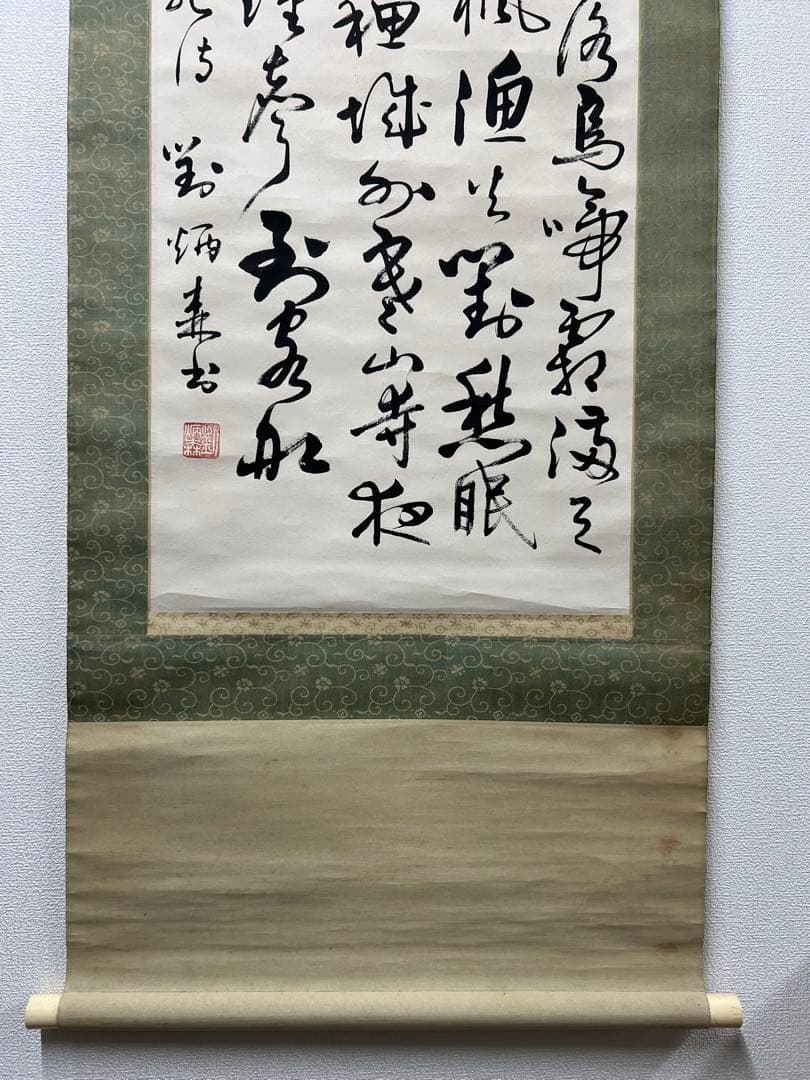 落烏啼霜滿天
楓漁火對愁眠
蘇城外寒山寺夜
鐘聲到客船
詩 劉炳森書
劉炳森